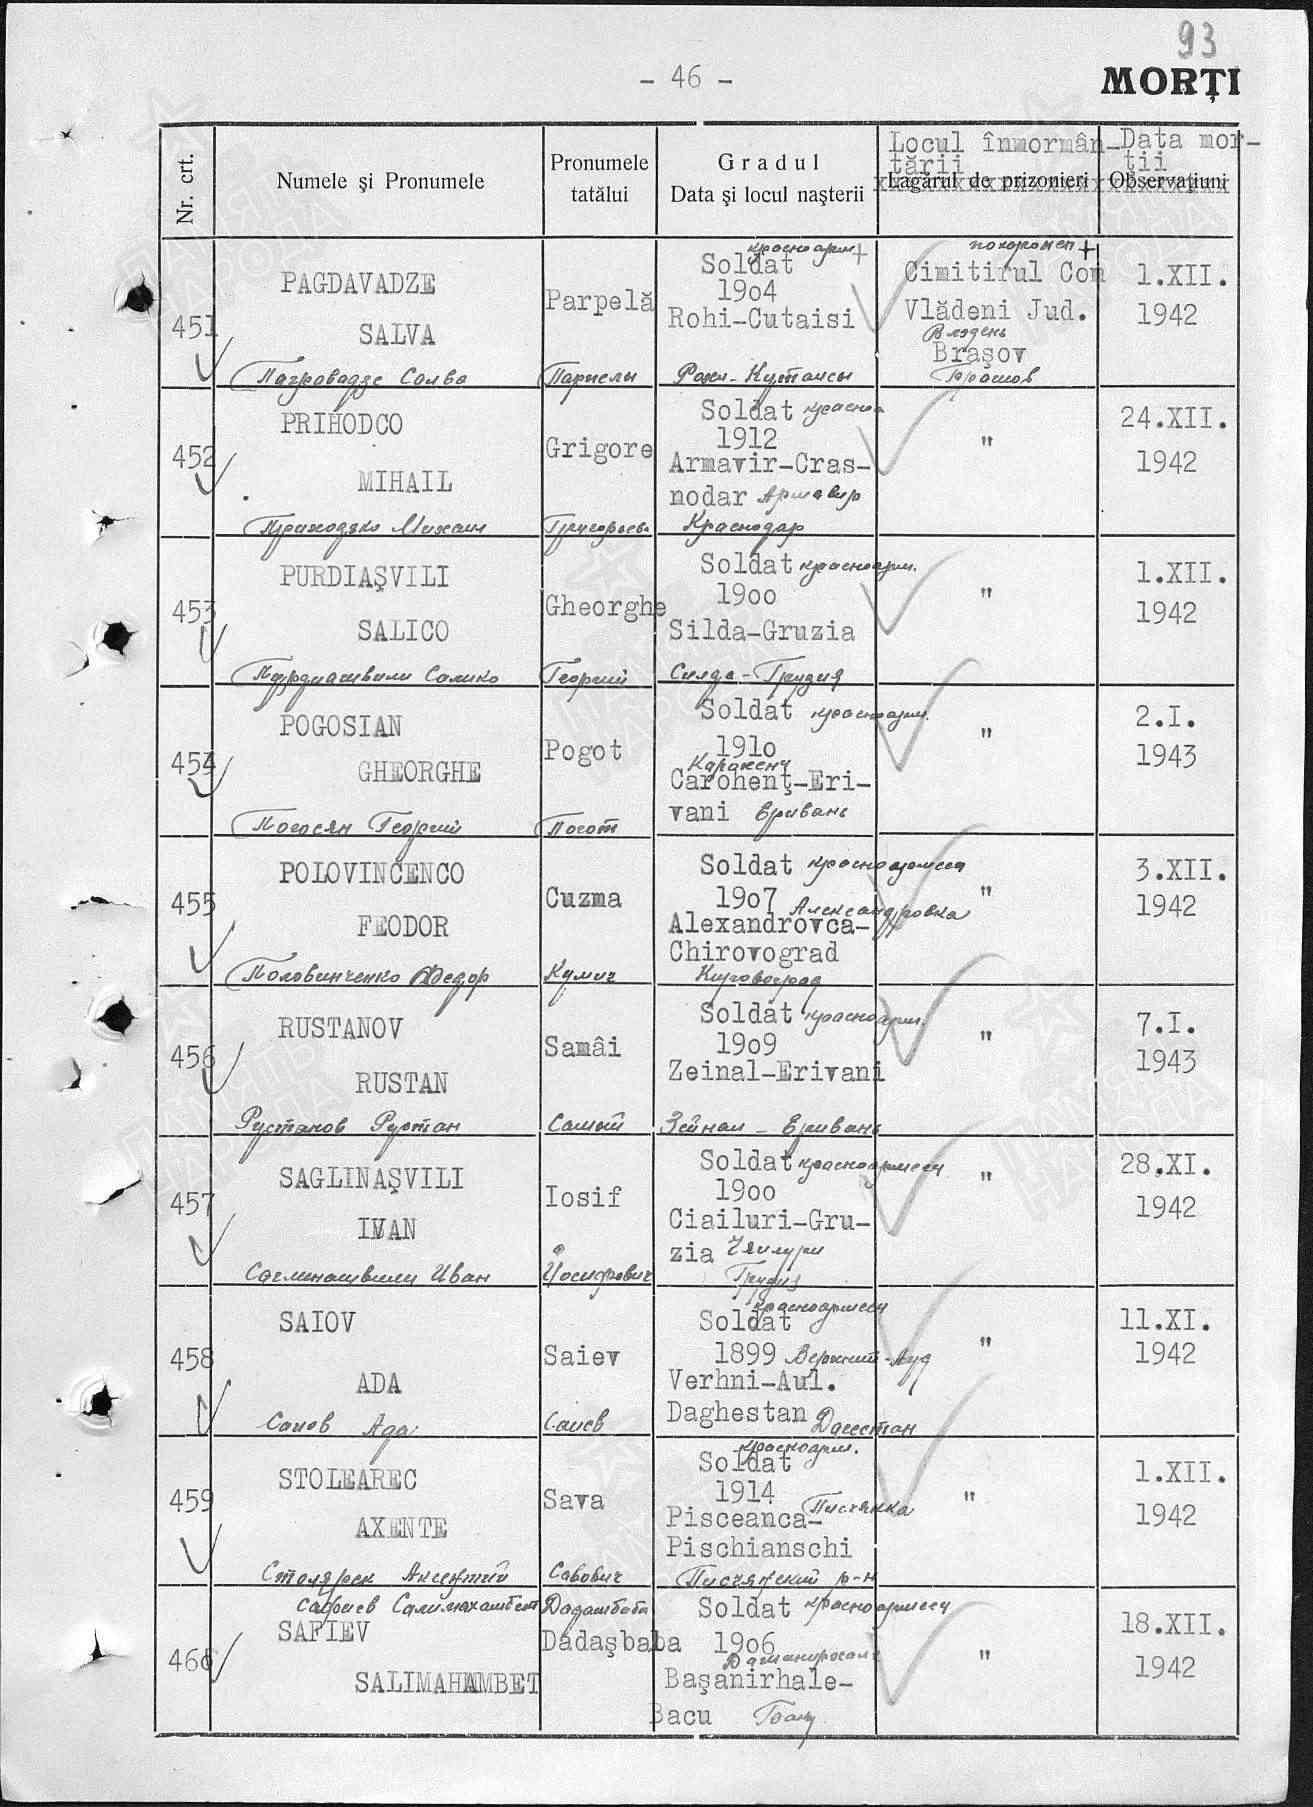 93
- 46 -
MORŢI
Nr. crt.
Numele şi Pronumele
Pronumele
tatălui
Gradul
Data şi locul naşterii
Locul înmormân-
tării
Lagărul de prizonieri
Data mor-
ţii
Observaţiuni
451
PAGDAVADZE
SALVA
Parpelă
красноарм +
Soldat
19o4
Rohi-Cutaisi
похоронен +
Cimitirul Com
Vlădeni Jud.
Владень
Braşov
1.XII.
1942
Салва
Рохи-Кутаисы
Брашов
452
PRIHODCO
MIHAIL
Grigore
Soldat красно
1912
Armavir-Cras-
nodar Армавир
"
24.XII.
1942
Приходько Михаил
Григорьев.
Краснодар
453
PURDIAŞVILI
SALICO
Gheorghe
Soldat красноарм.
19oo
Silda-Gruzia
"
1.XII.
1942
Пурдиашвили Салико
Георгий
Силда-Грузия
454
POGOSIAN
GHEORGHE
Pogot
Soldat красноарм.
191o
Carohenţ-Eri-
vani Еривань
"
2.I.
1943
Погосян Георгий
Погот
455
POLOVINCENCO
FEODOR
Cuzma
Soldat красноармеец
19o7 Александровка
Alexandrovca-
Chirovograd
"
3.XII.
1942
Половинченко Федор
Кировоград
456
RUSTANOV
RUSTAN
Samâi
Soldat красноарм.
19o9
Zeinal-Erivani
"
7.I.
1943
Рустанов Рустан
Самый
Зейнал - Еривань
457
SAGLINAŞVILI
IVAN
Iosif
Soldat красноармеец
19oo
Ciailuri-Gru-
zia Чяилури
Грузия
"
28.XI.
1942
Саглинашвили Иван
Иосифович
458
SAIOV
ADA
Saiev
красноармеец
Soldat
1899 Верхний-Аул
Verhni-Aul.
Daghestan Дагестан
"
11.XI.
1942
Саиов Ада
Саиев
459
STOLEAREC
AXENTE
Sava
красноарм.
Soldat
1914
Писчянка
Pisceanca-
Pischianschi
"
1.XII.
1942
Столярек Аксентий
Савович
Писчянский р-н
Сафиев Салимахамбет
Дадашбаба
460
SAFIEV
SALIMAHAMBET
Dadaşbaba
Soldat красноармеец
19o6
Başanirhale-
Bacu Баку
"
18.XII.
1942